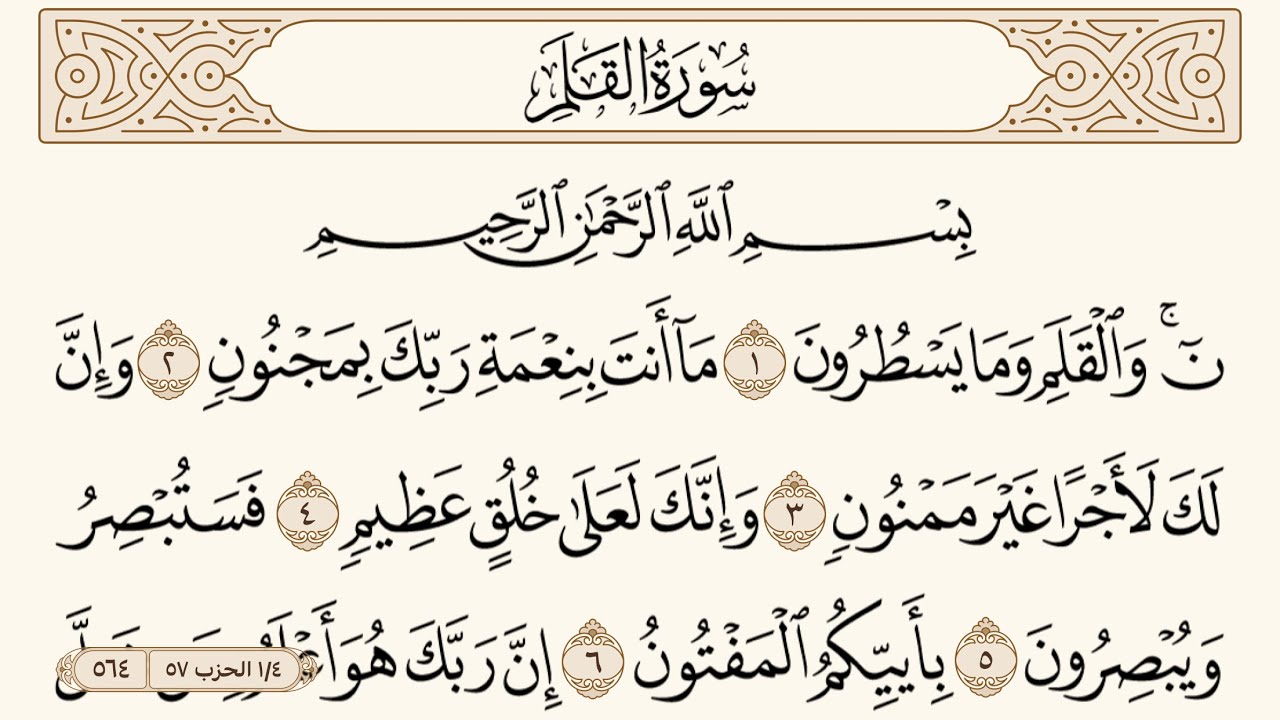 سُورَةُ القَلَمِ
بِسْمِ ٱللَّهِ ٱلرَّحْمَٰنِ ٱلرَّحِيمِ
نٓۚ وَٱلْقَلَمِ وَمَا يَسْطُرُونَ ١ مَآ أَنتَ بِنِعْمَةِ رَبِّكَ بِمَجْنُونٍ ٢ وَإِنَّ
لَكَ لَأَجْرًا غَيْرَ مَمْنُونٍ ٣ وَإِنَّكَ لَعَلَىٰ خُلُقٍ عَظِيمٍ ٤ فَسَتُبْصِرُ
وَيُبْصِرُونَ ٥ بِأَييِّكُمُ ٱلْمَفْتُونُ ٦ إِنَّ رَبَّكَ هُوَ
١/٤ الحزب ٥٧
٥٦٤